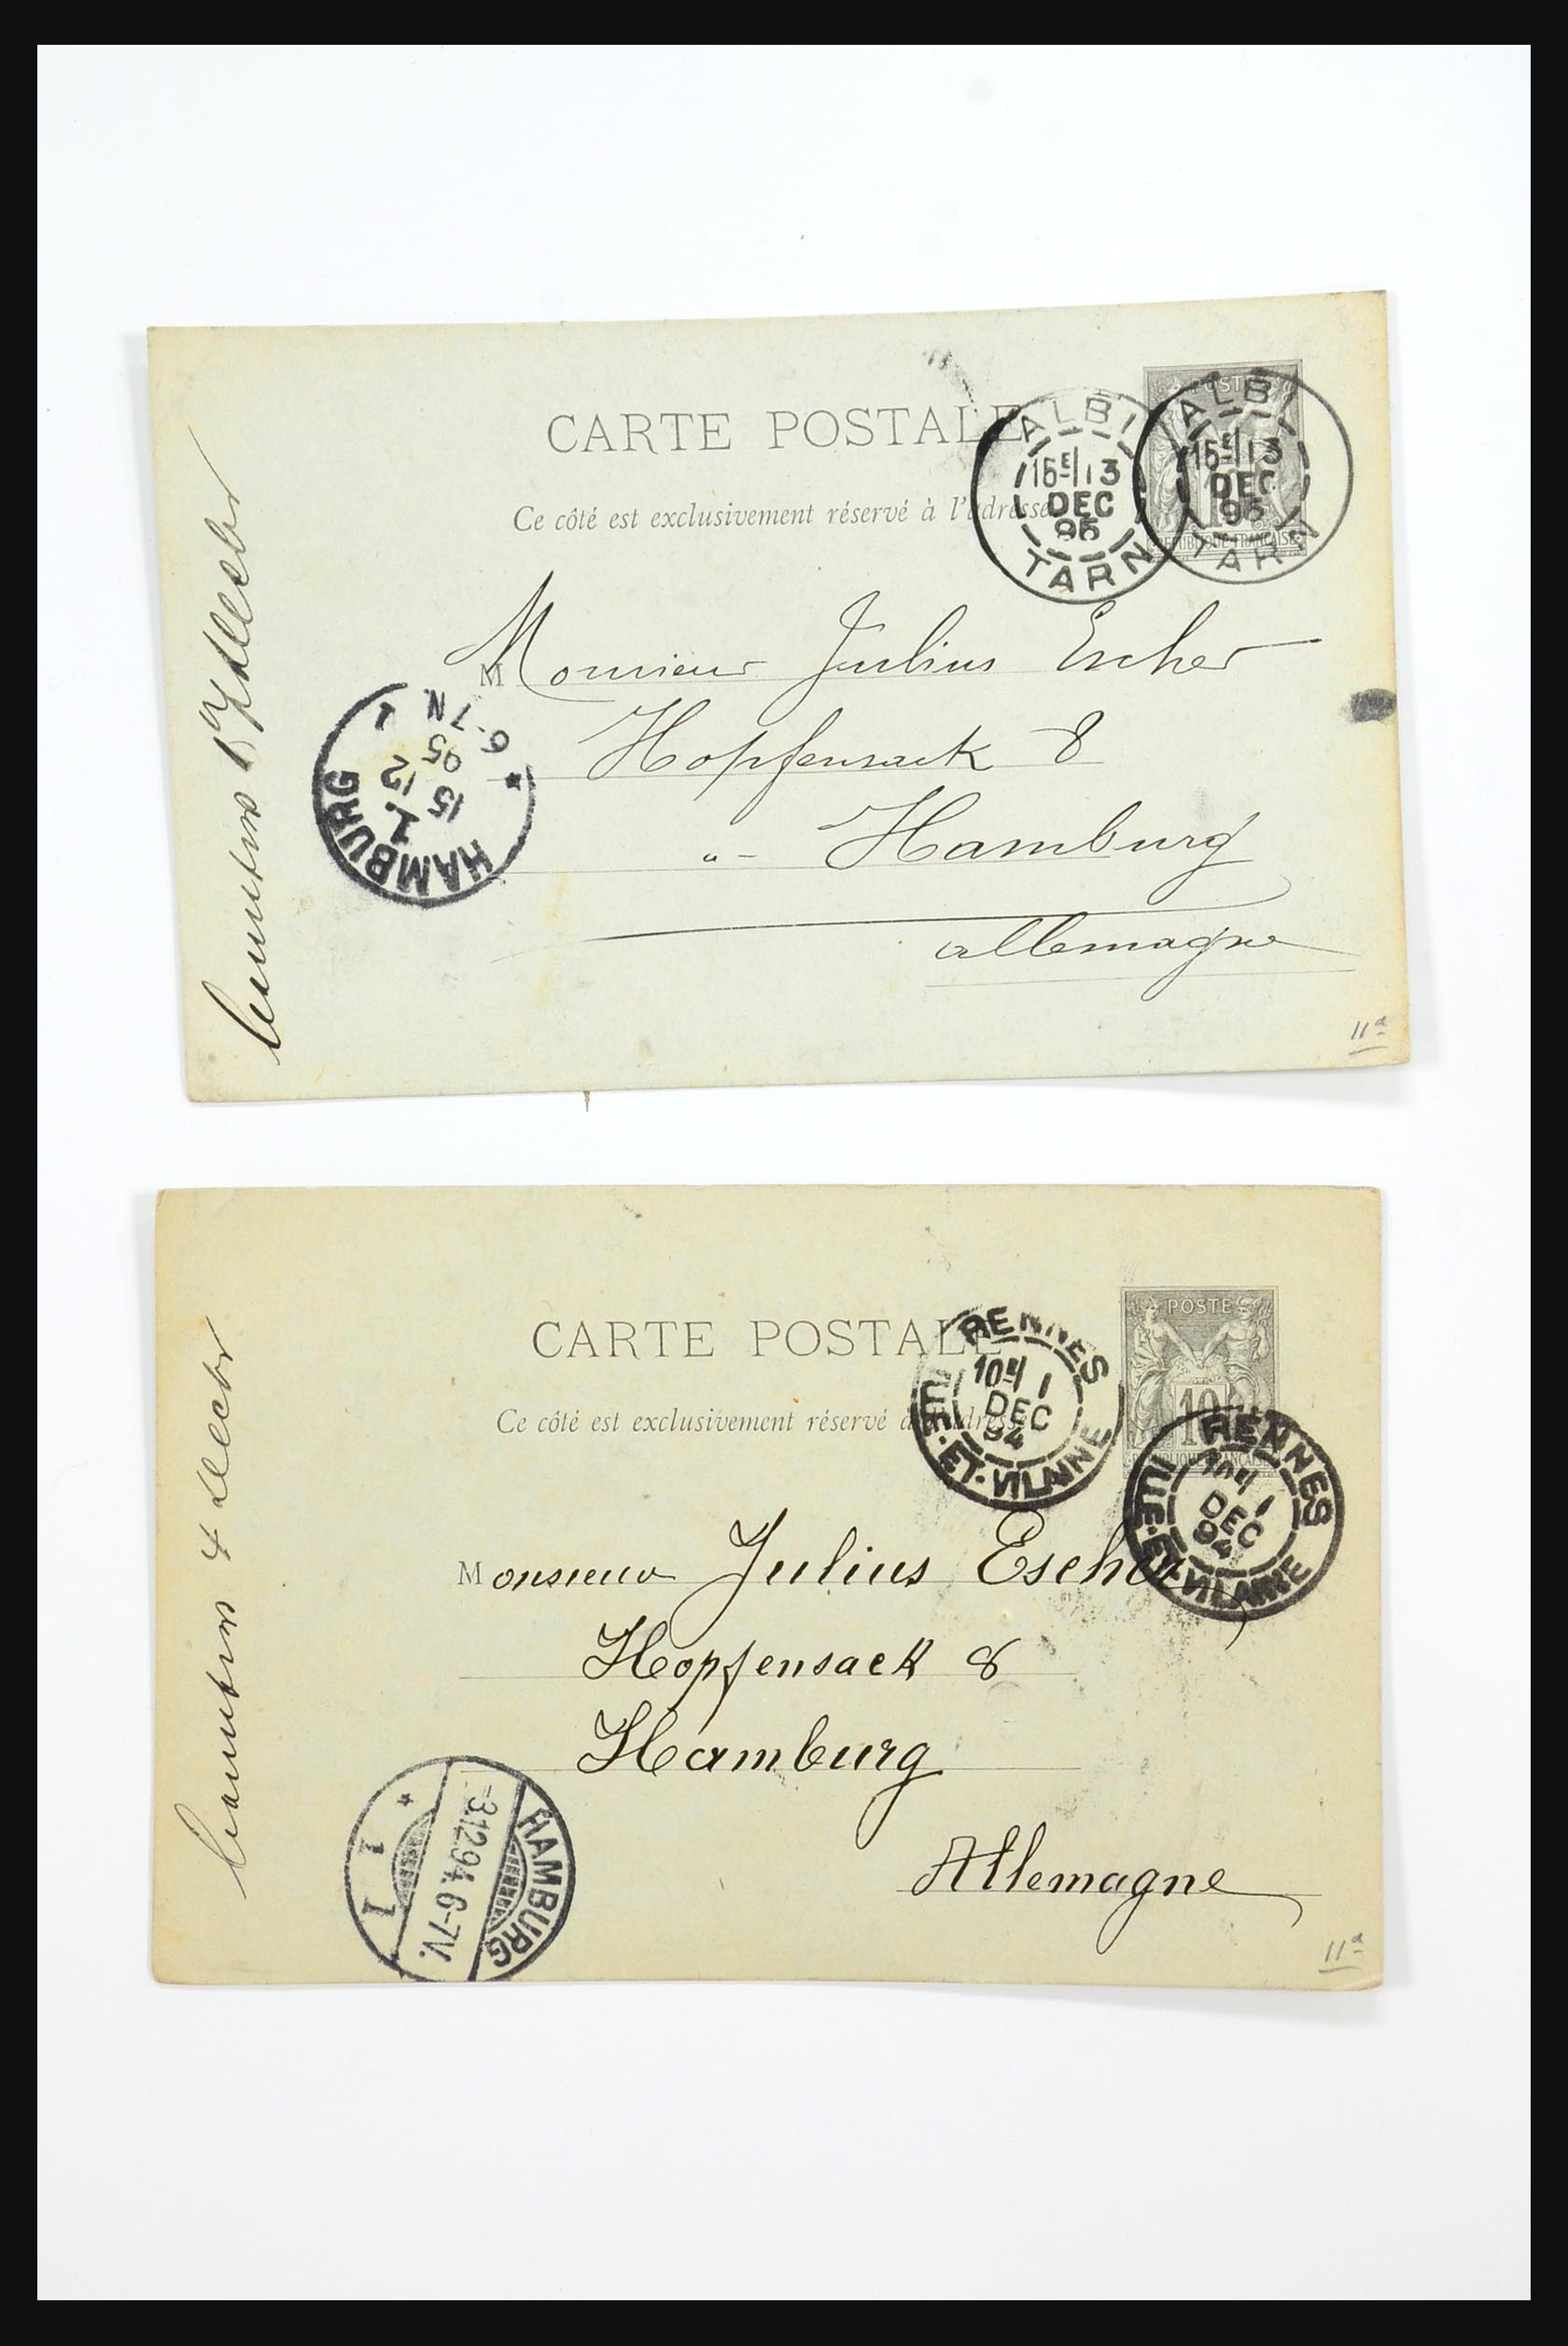 CARTE POSTALE
Ce côté est exclusivement réservé à l'adresse
ALBI
15E/13
DEC
95
TARN
ALBI
15E/13
DEC
95
TARN
POSTE
REPUBLIQUE FRANÇAISE
Monsieur Julius Escher
Hopfensack 8
"- Hamburg
allemagne
HAMBURG
1.
15 12
95
6-7 N
1
11a
CARTE POSTALE
Ce côté est exclusivement réservé à l'adresse
RENNES
10E/1
DEC
94
ILLE-ET-VILAINE
POSTE
10
REPUBLIQUE FRANÇAISE
RENNES
10E/1
DEC
94
ILLE-ET-VILAINE
Monsieur Julius Escher
Hopfensack 8
Hamburg
Allemagne
4 Decbr
HAMBURG
-3.12.94. 6-7V.
* 1 1
11a